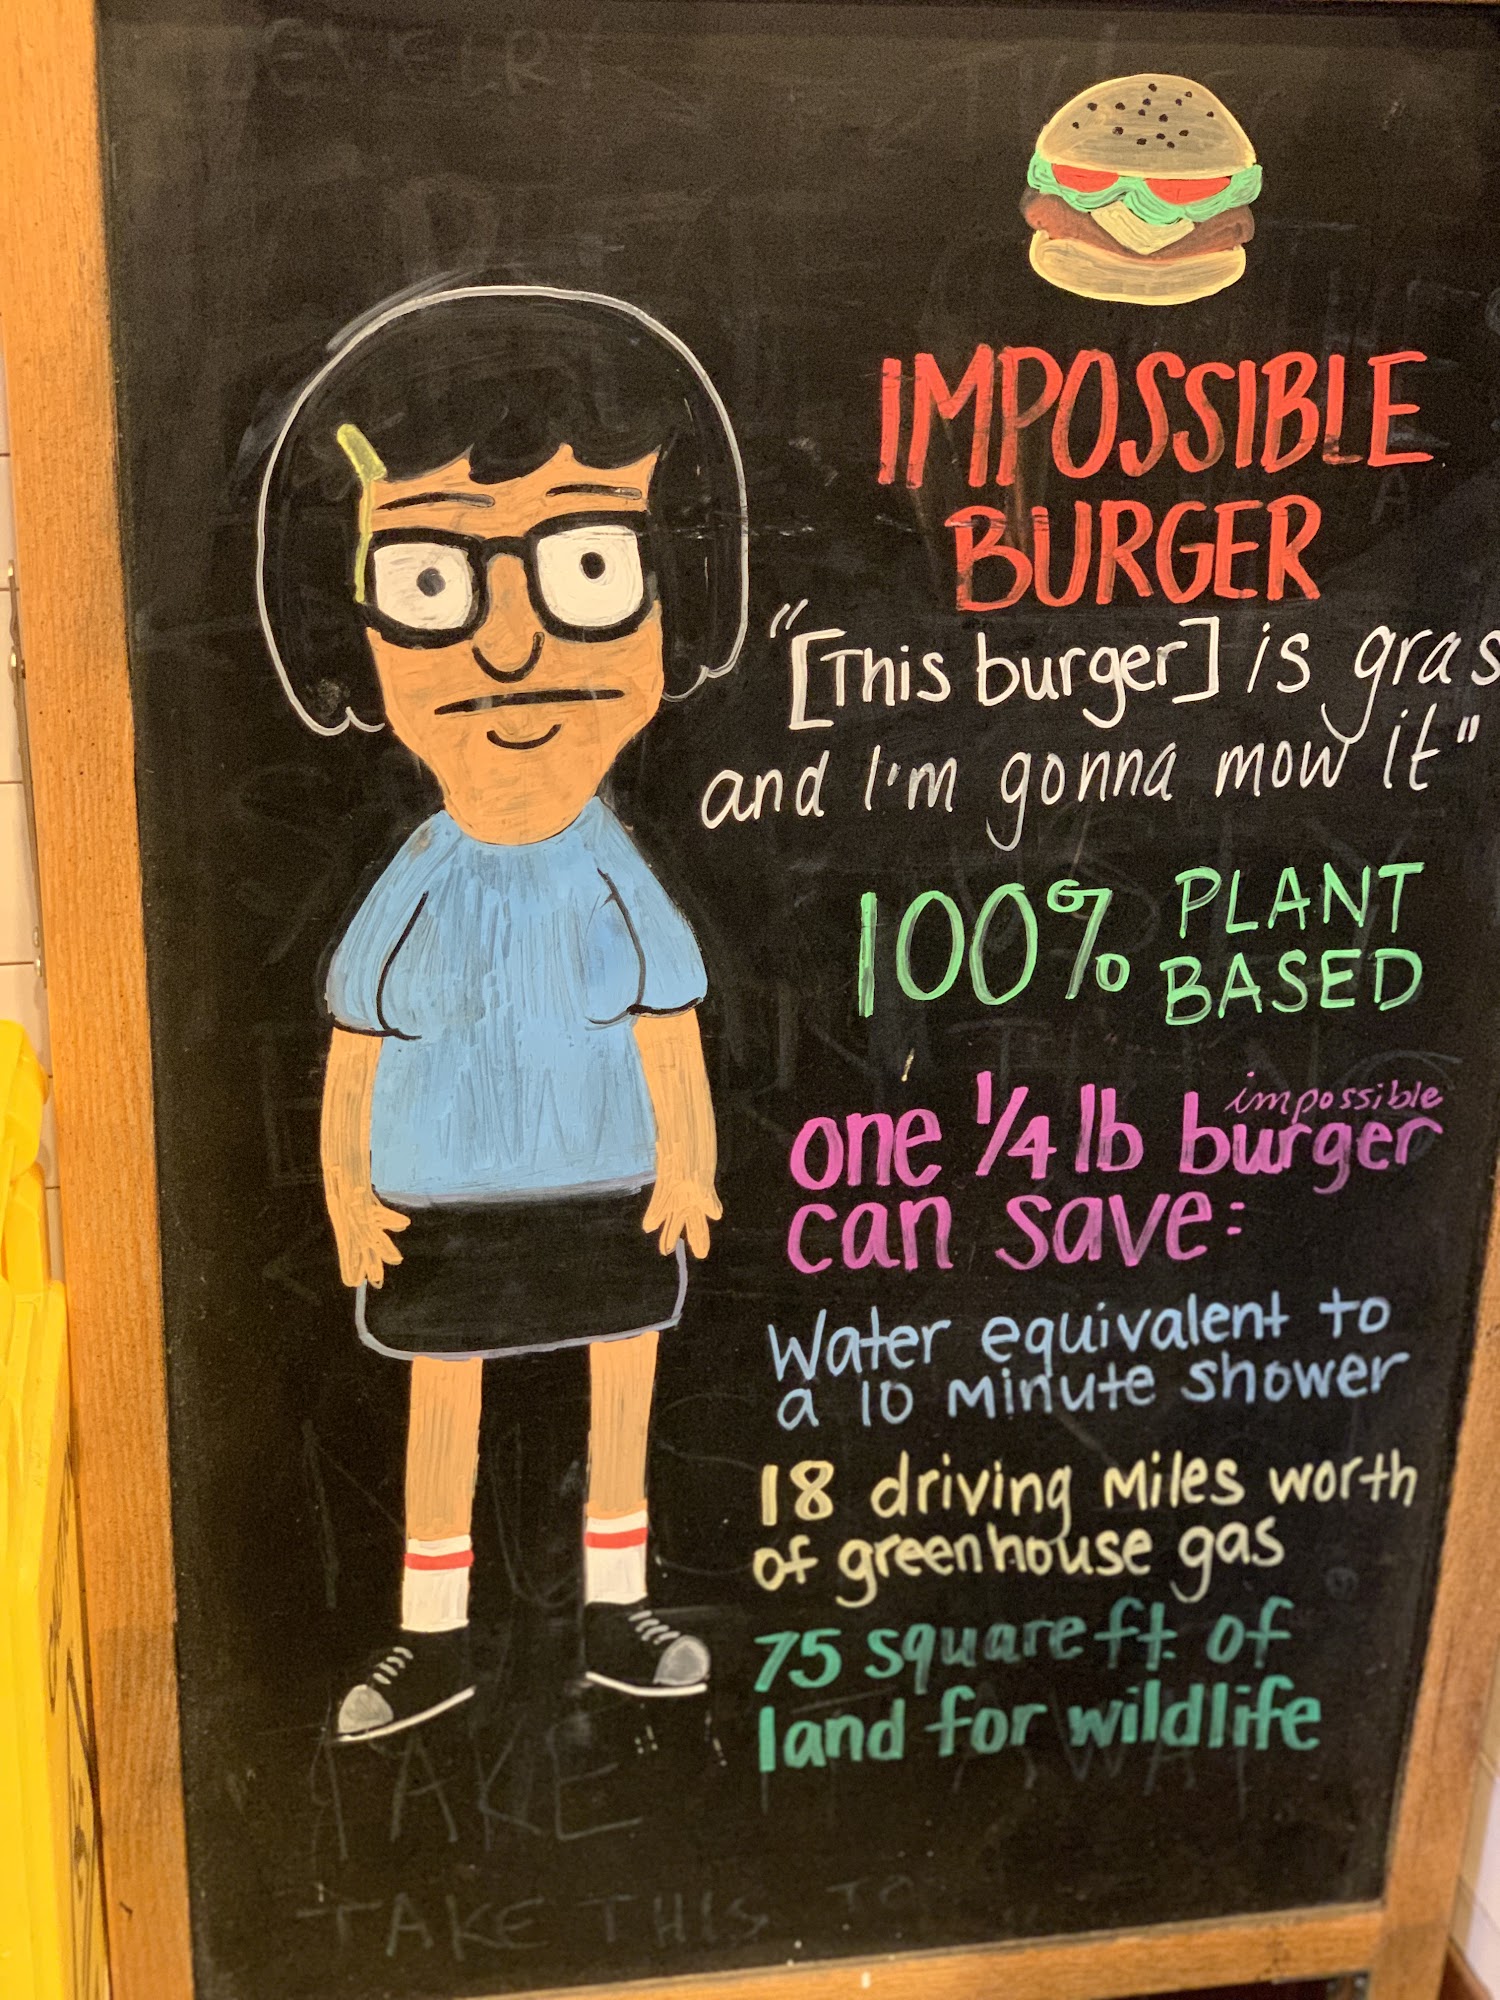 IMPOSSIBLE
BURGER
"[This burger] is gras
and I'm gonna mow it"
100% PLANT
BASED
one 1/4 lb impossible burger
can save:
Water equivalent to
a 10 minute shower
18 driving miles worth
of greenhouse gas
75 square ft. of
land for wildlife
TAKE AWAY
TAKE THIS TO